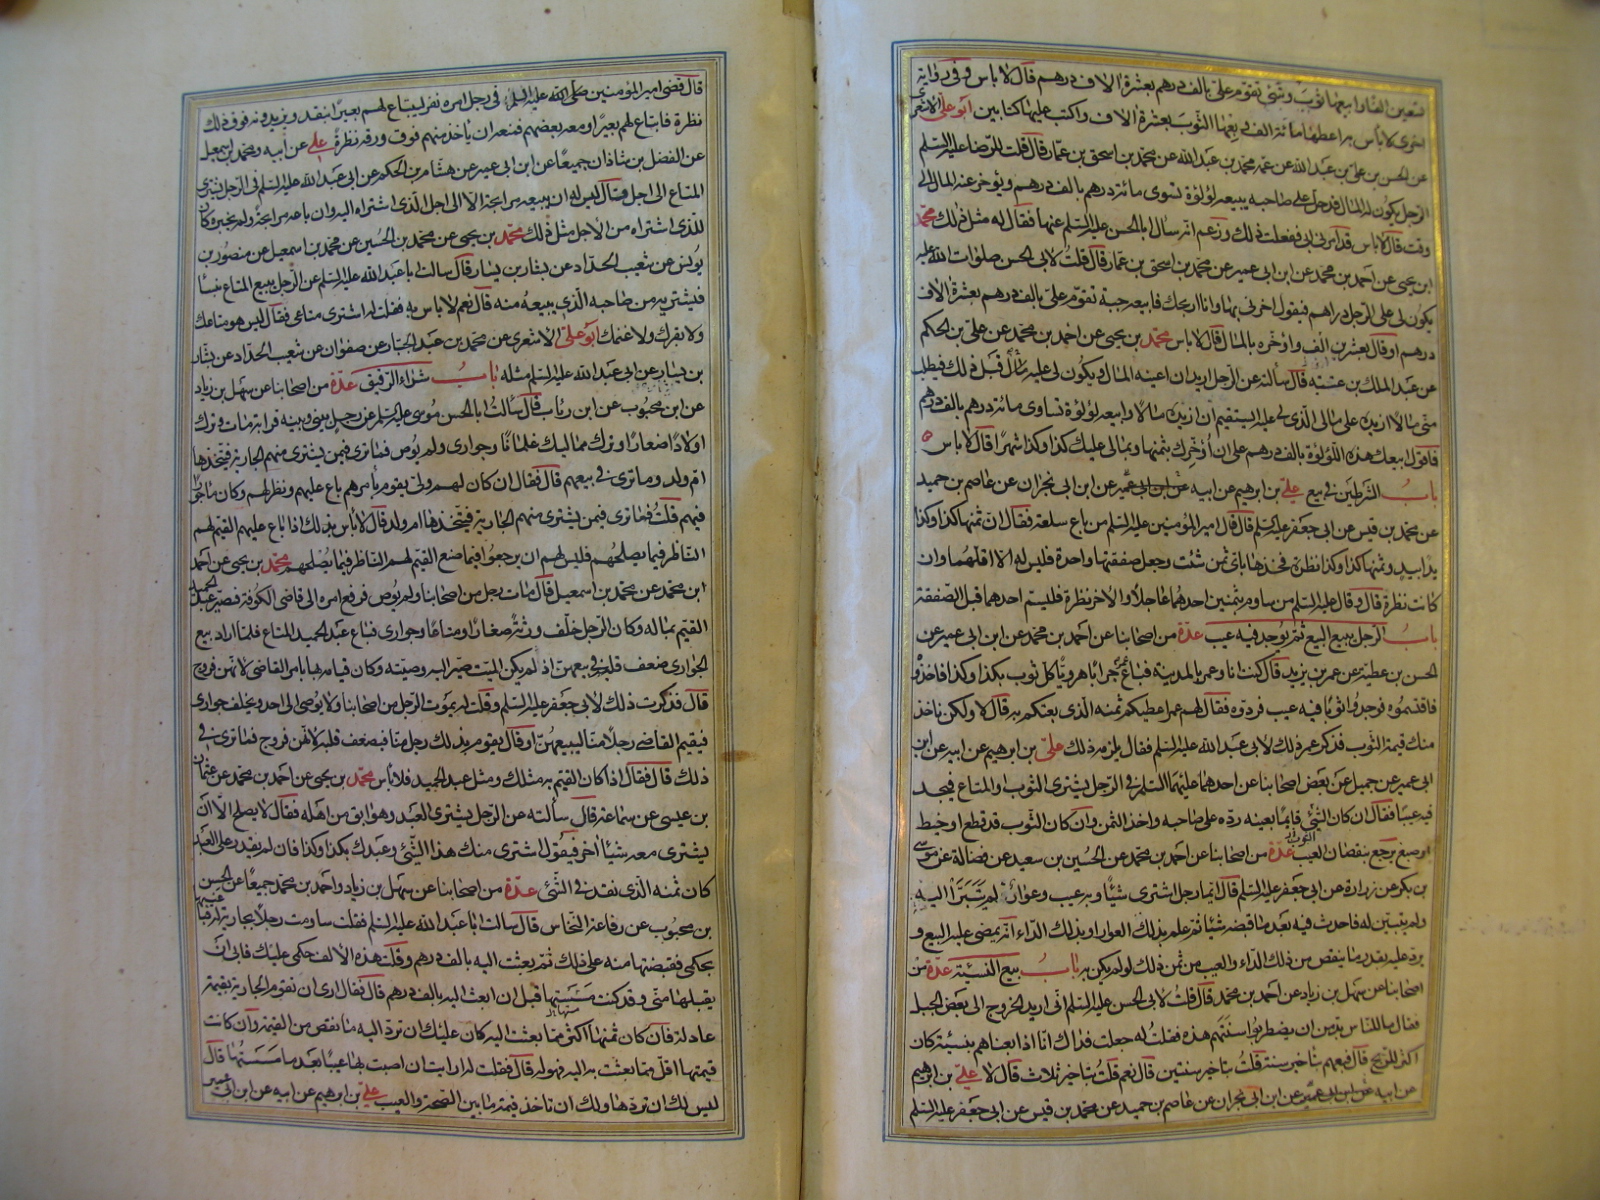 تسعين الفا وابيعها ثوب وشئ تقوم علي بالف درهم بعشرة الاف درهم قال لا باس وفي رواية
اخرى لا باس به اعطها مائة الف ل بعها الثوب بعشرة الاف واكتب عليها كتابين ابو علي الاشعري
عن الحسن بن علي بن عبد الله عن عمه محمد بن عبد الله عن محمد بن اسحق بن عمار قال قلت للرضا عليه السلم
الرجل يكون له المال فدخل على صاحبه يبيعه لؤلؤة تسوى مائة درهم بالف درهم ويؤخر عنه المال الى
وقت قال لا باس قد امرني ابي ففعلت ذلك وزعم انه سال ابا الحسن عليه السلم عنها فقال له مثل ذلك محمد
ابن يحيى عن احمد بن محمد عن ابن ابي عمير عن محمد بن اسحق بن عمار قال قلت لابي الحسن صلوات الله عليه
يكون لي على الرجل دراهم فيقول اخرني بها وانا اربحك فابيعه جبة تقوم علي بالف درهم بعشرة الاف
درهم او قال بعشرين الف واؤخره بالمال قال لا باس محمد بن يحيى عن احمد بن محمد عن علي بن الحكم
عن عبد الملك بن عتبة قال سالته عن الرجل اريد ان اعينه المال ويكون لي عليه مال قبل ذلك فيطلب
مني مالا ازيده على مالي الذي لي عليه ايستقيم ان ازيده مالا وابيعه لؤلؤة تساوى مائة درهم بالف درهم
فاقول ابيعك هذه اللؤلؤة بالف درهم على ان اؤخرك بثمنها وبمالي عليك كذا وكذا شهرا قال لا باس
باب الشرطين في بيع علي بن ابرهيم عن ابيه عن ابن ابي عمير عن ابن ابي نجران عن عاصم بن حميد
عن محمد بن قيس عن ابي جعفر عليه السلم قال قال امير المؤمنين عليه السلم من باع سلعة فقال ان ثمنها كذا وكذا
يدا بيد وثمنها كذا وكذا نظرة فخذها باي ثمن شئت وجعل صفقتها واحدة فليس له الا اقلهما وان
كانت نظرة قال وقال عليه السلم من ساوم بثمنين احدهما عاجلا والاخر نظرة فليسم احدهما قبل الصفقة
باب الرجل يبيع البيع ثم يوجد فيه عيب عدة من اصحابنا عن احمد بن محمد عن ابن ابي عمير عن
الحسن بن عطية عن عمر بن يزيد قال كنت انا وعمر بالمدينة فباع عمر جرابا هرويا كل ثوب بكذا وكذا فاخذو
فاقتسموه فوجدوا ثوبا فيه عيب فردوه فقال لهم عمر اعطيكم ثمنه الذي بعتكم به قال لا ولكن ناخذ
منك قيمة الثوب فذكر عمر ذلك لابي عبد الله عليه السلم فقال يلزمه ذلك علي بن ابرهيم عن ابيه عن ابن
ابي عمير عن جميل عن بعض اصحابنا عن احدهما عليهما السلم في الرجل يشترى الثوب او المتاع فيجد
فيه عيبا فقال ان كان الشئ قايما بعينه رده على صاحبه واخذ الثمن وان كان الثوب قد قطع او خيط
او صبغ يرجع بنقصان العيب عدة من اصحابنا عن احمد بن محمد عن الحسين بن سعيد عن فضالة عن موسى
بن بكر عن زرارة عن ابي جعفر عليه السلم قال ايما رجل اشترى شيئا وبه عيب وعوار لم يتبرأ اليه
ولم يتبين له فاحدث فيه بعد ما قبضه شيئا ثم علم بذلك العوار او بذلك الداء انه يمضي عليه البيع و
يرد عليه بقدر ما ينقص من ذلك الداء والعيب من ثمن ذلك لو لم يكن به باب بيع النسيئة عدة من
اصحابنا عن سهل بن زياد عن احمد بن محمد قال قلت لابي الحسن عليه السلم اني اريد الخروج الى بعض الجبل
فقال ما للناس بد من ان يضطربوا سنتهم هذه فقلت له جعلت فداك انا اذا بعناهم بنسيئة كان
اكثر للربح قال فبعهم بتاخير سنة قلت بتاخير سنتين قال نعم قلت بتاخير ثلاث قال لا علي بن ابرهيم
عن ابيه عن ابن ابي عمير عن ابن ابي نجران عن عاصم بن حميد عن محمد بن قيس عن ابي جعفر عليه السلم
قال قضى امير المؤمنين صلى الله عليه السلم في رجل امره نفر ليبتاع لهم بعيرا بنقد ويزيدونه فوق ذلك
نظرة فابتاع لهم بعيرا ومعه بعضهم فمنعه ان ياخذ منهم فوق ورقه نظرة علي عن ابيه ومحمد بن اسمعيل
عن الفضل بن شاذان جميعا عن ابن ابي عمير عن هشام بن الحكم عن ابي عبد الله عليه السلم في الرجل يشترى
المتاع الى اجل فقال ليس له ان يبيعه مرابحة الا الى اجل الذي اشتراه اليه وان باعه مرابحة ولم يخبره كان
للذي اشتراه من الاجل مثل ذلك محمد بن يحيى عن محمد بن الحسين عن محمد بن اسمعيل عن منصور بن
يونس عن شعيب الحداد عن بشار بن يسار قال سالت ابا عبد الله عليه السلم عن الرجل يبيع المتاع نسا
فيشتريه من صاحبه الذي يبيعه منه قال نعم لا باس به فقلت له اشترى متاعي فقال ليس هو متاعك
ولا بقرك ولا غنمك ابو علي الاشعري عن محمد بن عبد الجبار عن صفوان عن شعيب الحداد عن بشار
بن يسار عن ابي عبد الله عليه السلم مثله باب شراء الرقيق عدة من اصحابنا عن سهل بن زياد
عن ابن محبوب عن ابن رئاب قال سالت ابا الحسن موسى عليه السلم عن رجل بيني وبينه قرابة مات وترك
اولادا صغارا وترك مماليك غلمانا وجواري ولم يوص فما ترى فيمن يشترى منهم الجارية فيتخذها
ام ولد وما ترى في بيعهم قال فقال ان كان لهم ولي يقوم بأمرهم باع عليهم ونظر لهم وكان ماجورا
فيهم قلت فما ترى فيمن يشترى منهم الجارية فيتخذها ام ولد قال لا بأس بذلك اذا باع عليهم القيم لهم
الناظر فيما يصلحهم فليس لهم ان يرجعوا فيما صنع القيم لهم الناظر فيما يصلحهم محمد بن يحيى عن احمد
ابن محمد عن محمد بن اسمعيل قال مات رجل من اصحابنا ولم يوص فرفع امره الى قاضي الكوفة فصير عبد الحميد
القيم بماله وكان الرجل خلف ورثة صغارا ومتاعا وجواري فباع عبد الحميد المتاع فلما اراد بيع
الجواري ضعف قلبه في بيعهن اذ لم يكن الميت صير اليه وصيته وكان قيامه بها بامر القاضي لانهن فروج
قال فذكرت ذلك لابي جعفر عليه السلم وقلت له يموت الرجل من اصحابنا ولا يوصى الى احد ويخلف جواري
فيقيم القاضي رجلا منا ليبيعهن او قال يقوم بذلك رجل منا فيضعف قلبه لانهن فروج فما ترى في
ذلك قال فقال اذا كان القيم به مثلك ومثل عبد الحميد فلا باس محمد بن يحيى عن احمد بن محمد عن عثمان
بن عيسى عن سماعة قال سألته عن الرجل يشترى العبد وهو ابق من اهله فقال لا يصلح الا ان
يشترى معه شيئا آخر فيقول اشترى منك هذا الشئ وعبدك بكذا وكذا فان لم يقدر على العبد
كان ثمنه الذي نقد في الشئ عدة من اصحابنا عن سهل بن زياد واحمد بن محمد جميعا عن الحسن
بن محبوب عن رفاعة النخاس قال سالت ابا عبد الله عليه السلم فقلت ساومت رجلا بجارية له فباعنيها
بحكمي فقبضتها منه على ذلك ثم بعثت اليه بالف درهم وقلت هذه الالف حكمي عليك فابى ان
يقبلها مني وقد كنت مسستها قبل ان ابعث اليه بالف درهم قال فقال ارى ان تقوم الجارية بقيمة
عادلة فان كان ثمنها اكثر مما بعثت اليه كان عليك ان ترد اليه ما نقص من القيمة وان كانت
قيمتها اقل مما بعثت به اليه فهو له قال فقلت له ارايت ان اصبت بها عيبا بعد ما مسستها قال
ليس لك ان تردها ولك ان تاخذ قيمة ما بين الصحة والعيب علي بن ابرهيم عن ابيه عن ابن ابي عمير